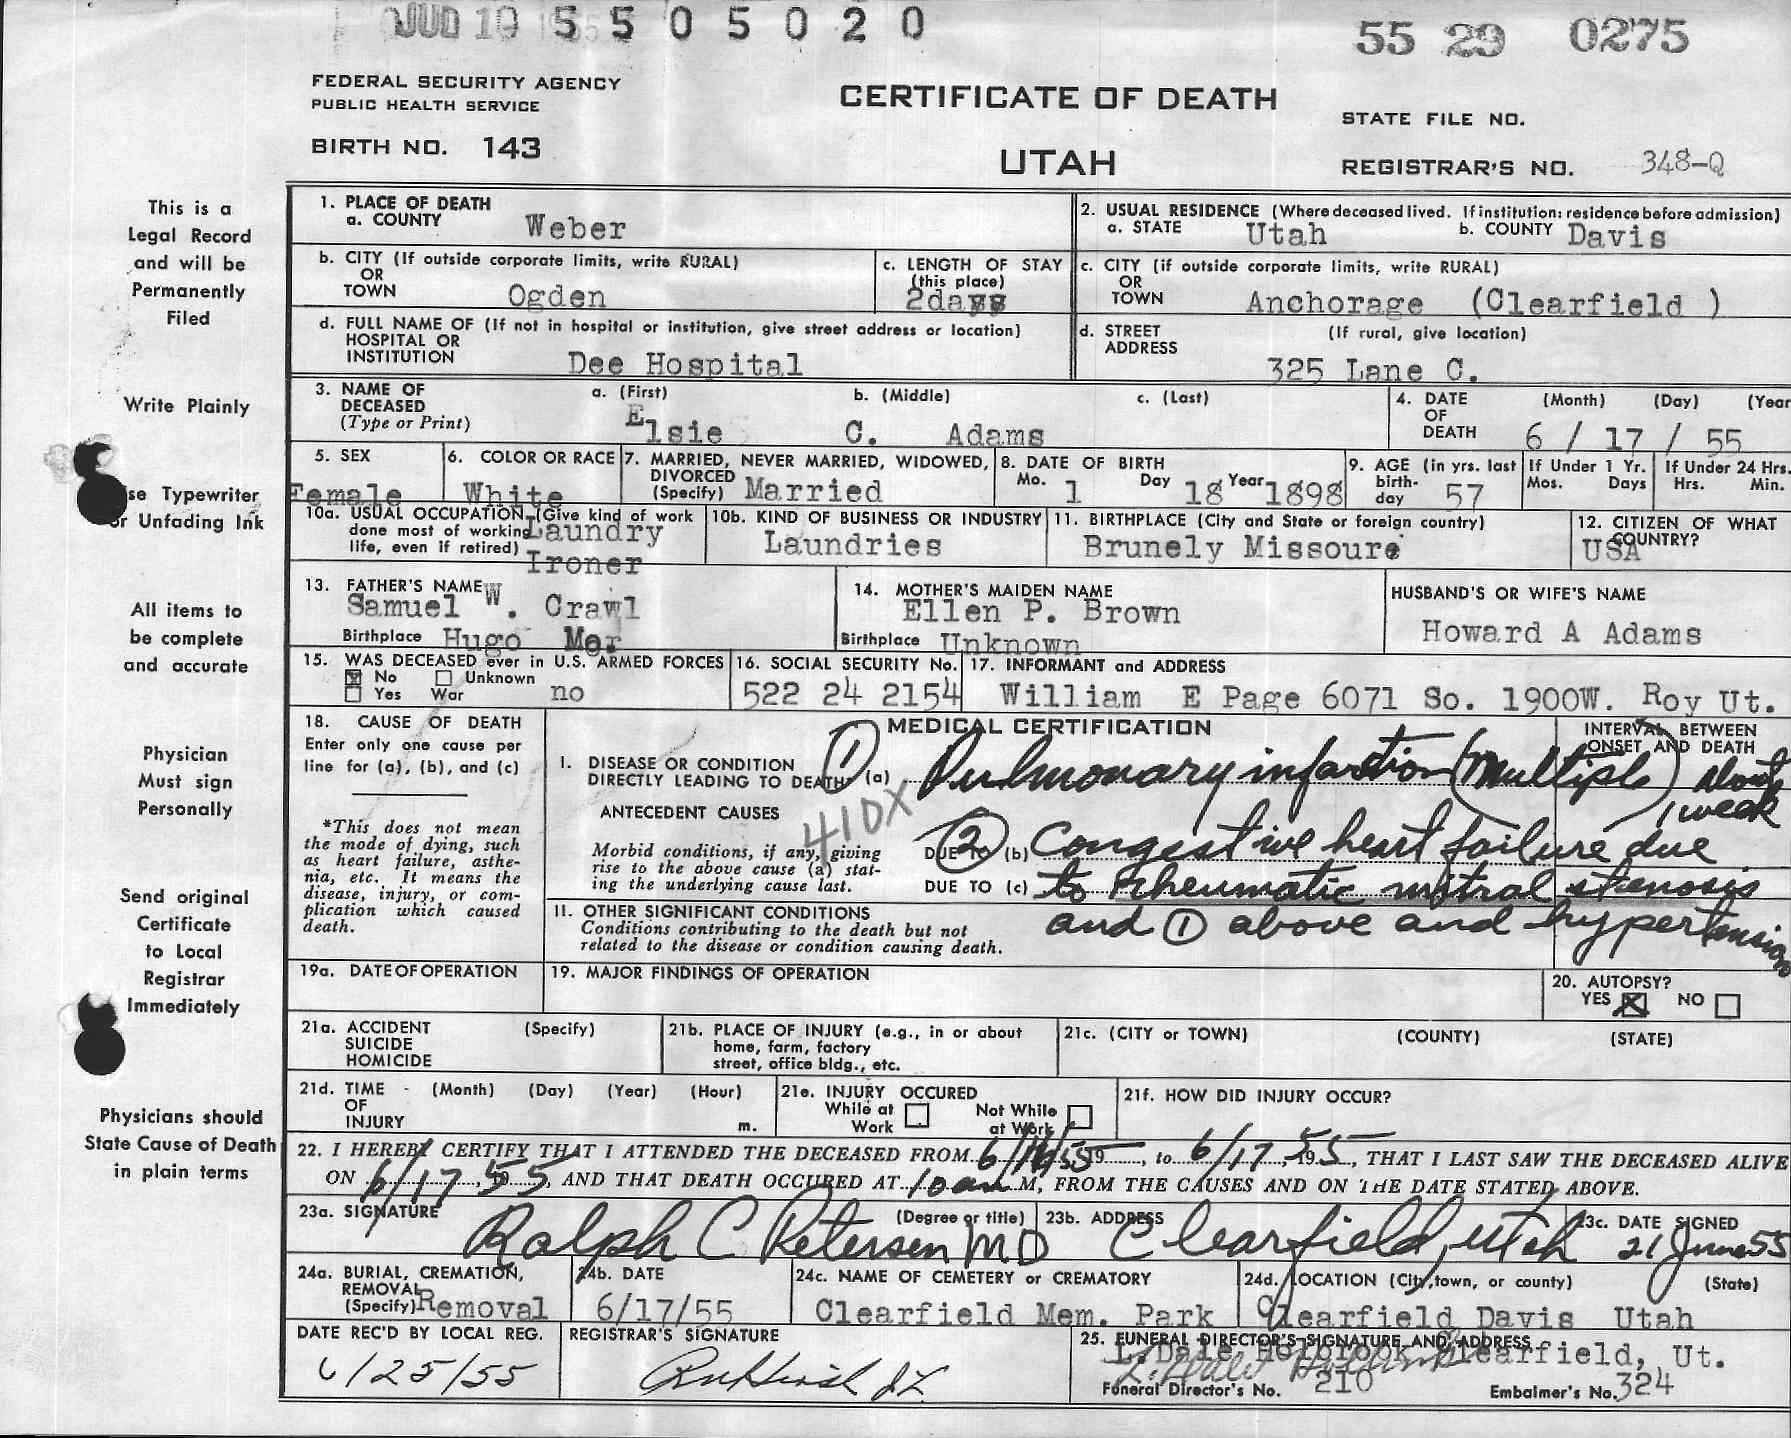 JUN 19 5 5 0 5 0 2 0
55 29 0275
FEDERAL SECURITY AGENCY
PUBLIC HEALTH SERVICE
BIRTH NO. 143
CERTIFICATE OF DEATH
UTAH
STATE FILE NO.
REGISTRAR'S NO. 348-Q
This is a
Legal Record
and will be
Permanently
Filed
Write Plainly
se Typewriter
or Unfading Ink
All items to
be complete
and accurate
Physician
Must sign
Personally
Send original
Certificate
to Local
Registrar
Immediately
Physicians should
State Cause of Death
in plain terms
1. PLACE OF DEATH
a. COUNTY Weber
2. USUAL RESIDENCE (Where deceased lived. If institution: residence before admission)
a. STATE Utah b. COUNTY Davis
b. CITY (If outside corporate limits, write RURAL)
OR
TOWN Ogden
c. LENGTH OF STAY
(this place)
2days
c. CITY (if outside corporate limits, write RURAL)
OR
TOWN Anchorage (Clearfield )
d. FULL NAME OF (If not in hospital or institution, give street address or location)
HOSPITAL OR
INSTITUTION Dee Hospital
d. STREET (If rural, give location)
ADDRESS
325 Lane C.
3. NAME OF a. (First) b. (Middle) c. (Last)
DECEASED
(Type or Print) Elsie C. Adams
4. DATE (Month) (Day) (Year
OF
DEATH 6 / 17 / 55
5. SEX
Female
6. COLOR OR RACE
White
7. MARRIED, NEVER MARRIED, WIDOWED,
DIVORCED
(Specify) Married
8. DATE OF BIRTH
Mo. 1 Day 18 Year 1898
9. AGE (in yrs. last
birth-
day 57
If Under 1 Yr.
Mos. Days
If Under 24 Hrs.
Hrs. Min.
10a. USUAL OCCUPATION (Give kind of work
done most of working Laundry
life, even if retired)
Ironer
10b. KIND OF BUSINESS OR INDUSTRY
Laundries
11. BIRTHPLACE (City and State or foreign country)
Brunely Missoure
12. CITIZEN OF WHAT
COUNTRY?
USA
13. FATHER'S NAME
Samuel W. Crawl
Birthplace Hugo Mo.
14. MOTHER'S MAIDEN NAME
Ellen P. Brown
Birthplace Unknown
HUSBAND'S OR WIFE'S NAME
Howard A Adams
15. WAS DECEASED ever in U.S. ARMED FORCES
No Unknown
Yes War no
16. SOCIAL SECURITY No.
522 24 2154
17. INFORMANT and ADDRESS
William E Page 6071 So. 1900W. Roy Ut.
18. CAUSE OF DEATH
Enter only one cause per
line for (a), (b), and (c)
*This does not mean
the mode of dying, such
as heart failure, asthe-
nia, etc. It means the
disease, injury, or com-
plication which caused
death.
MEDICAL CERTIFICATION
INTERVAL BETWEEN
ONSET AND DEATH
I. DISEASE OR CONDITION
DIRECTLY LEADING TO DEATH* (a) ① Pulmonary infarction (Multiple) about
1 week
ANTECEDENT CAUSES
410X
Morbid conditions, if any, giving
rise to the above cause (a) stat-
ing the underlying cause last.
DUE TO (b) ② Congestive heart failure due
DUE TO (c) to rheumatic mitral stenosis
and ① above and hypertension
II. OTHER SIGNIFICANT CONDITIONS
Conditions contributing to the death but not
related to the disease or condition causing death.
19a. DATE OF OPERATION
19. MAJOR FINDINGS OF OPERATION
20. AUTOPSY?
YES X NO
21a. ACCIDENT (Specify)
SUICIDE
HOMICIDE
21b. PLACE OF INJURY (e.g., in or about
home, farm, factory
street, office bldg., etc.
21c. (CITY or TOWN) (COUNTY) (STATE)
21d. TIME (Month) (Day) (Year) (Hour)
OF
INJURY m.
21e. INJURY OCCURED
While at Not While
Work at Work
21f. HOW DID INJURY OCCUR?
22. I HEREBY CERTIFY THAT I ATTENDED THE DECEASED FROM 6/16/55 19, to 6/17, 1955, THAT I LAST SAW THE DECEASED ALIVE
ON 6/17, 55, AND THAT DEATH OCCURED AT 10 am M, FROM THE CAUSES AND ON THE DATE STATED ABOVE.
23a. SIGNATURE (Degree or title)
Ralph C Petersen MD
23b. ADDRESS
Clearfield, Utah
23c. DATE SIGNED
21 June 55
24a. BURIAL, CREMATION,
REMOVAL
(Specify) Removal
24b. DATE
6/17/55
24c. NAME OF CEMETERY or CREMATORY
Clearfield Mem. Park
24d. LOCATION (City, town, or county) (State)
Clearfield Davis Utah
DATE REC'D BY LOCAL REG.
6/25/55
REGISTRAR'S SIGNATURE
25. FUNERAL DIRECTOR'S SIGNATURE AND ADDRESS
L. Dale Holbrook Clearfield, Ut.
Funeral Director's No. 210 Embalmer's No. 324